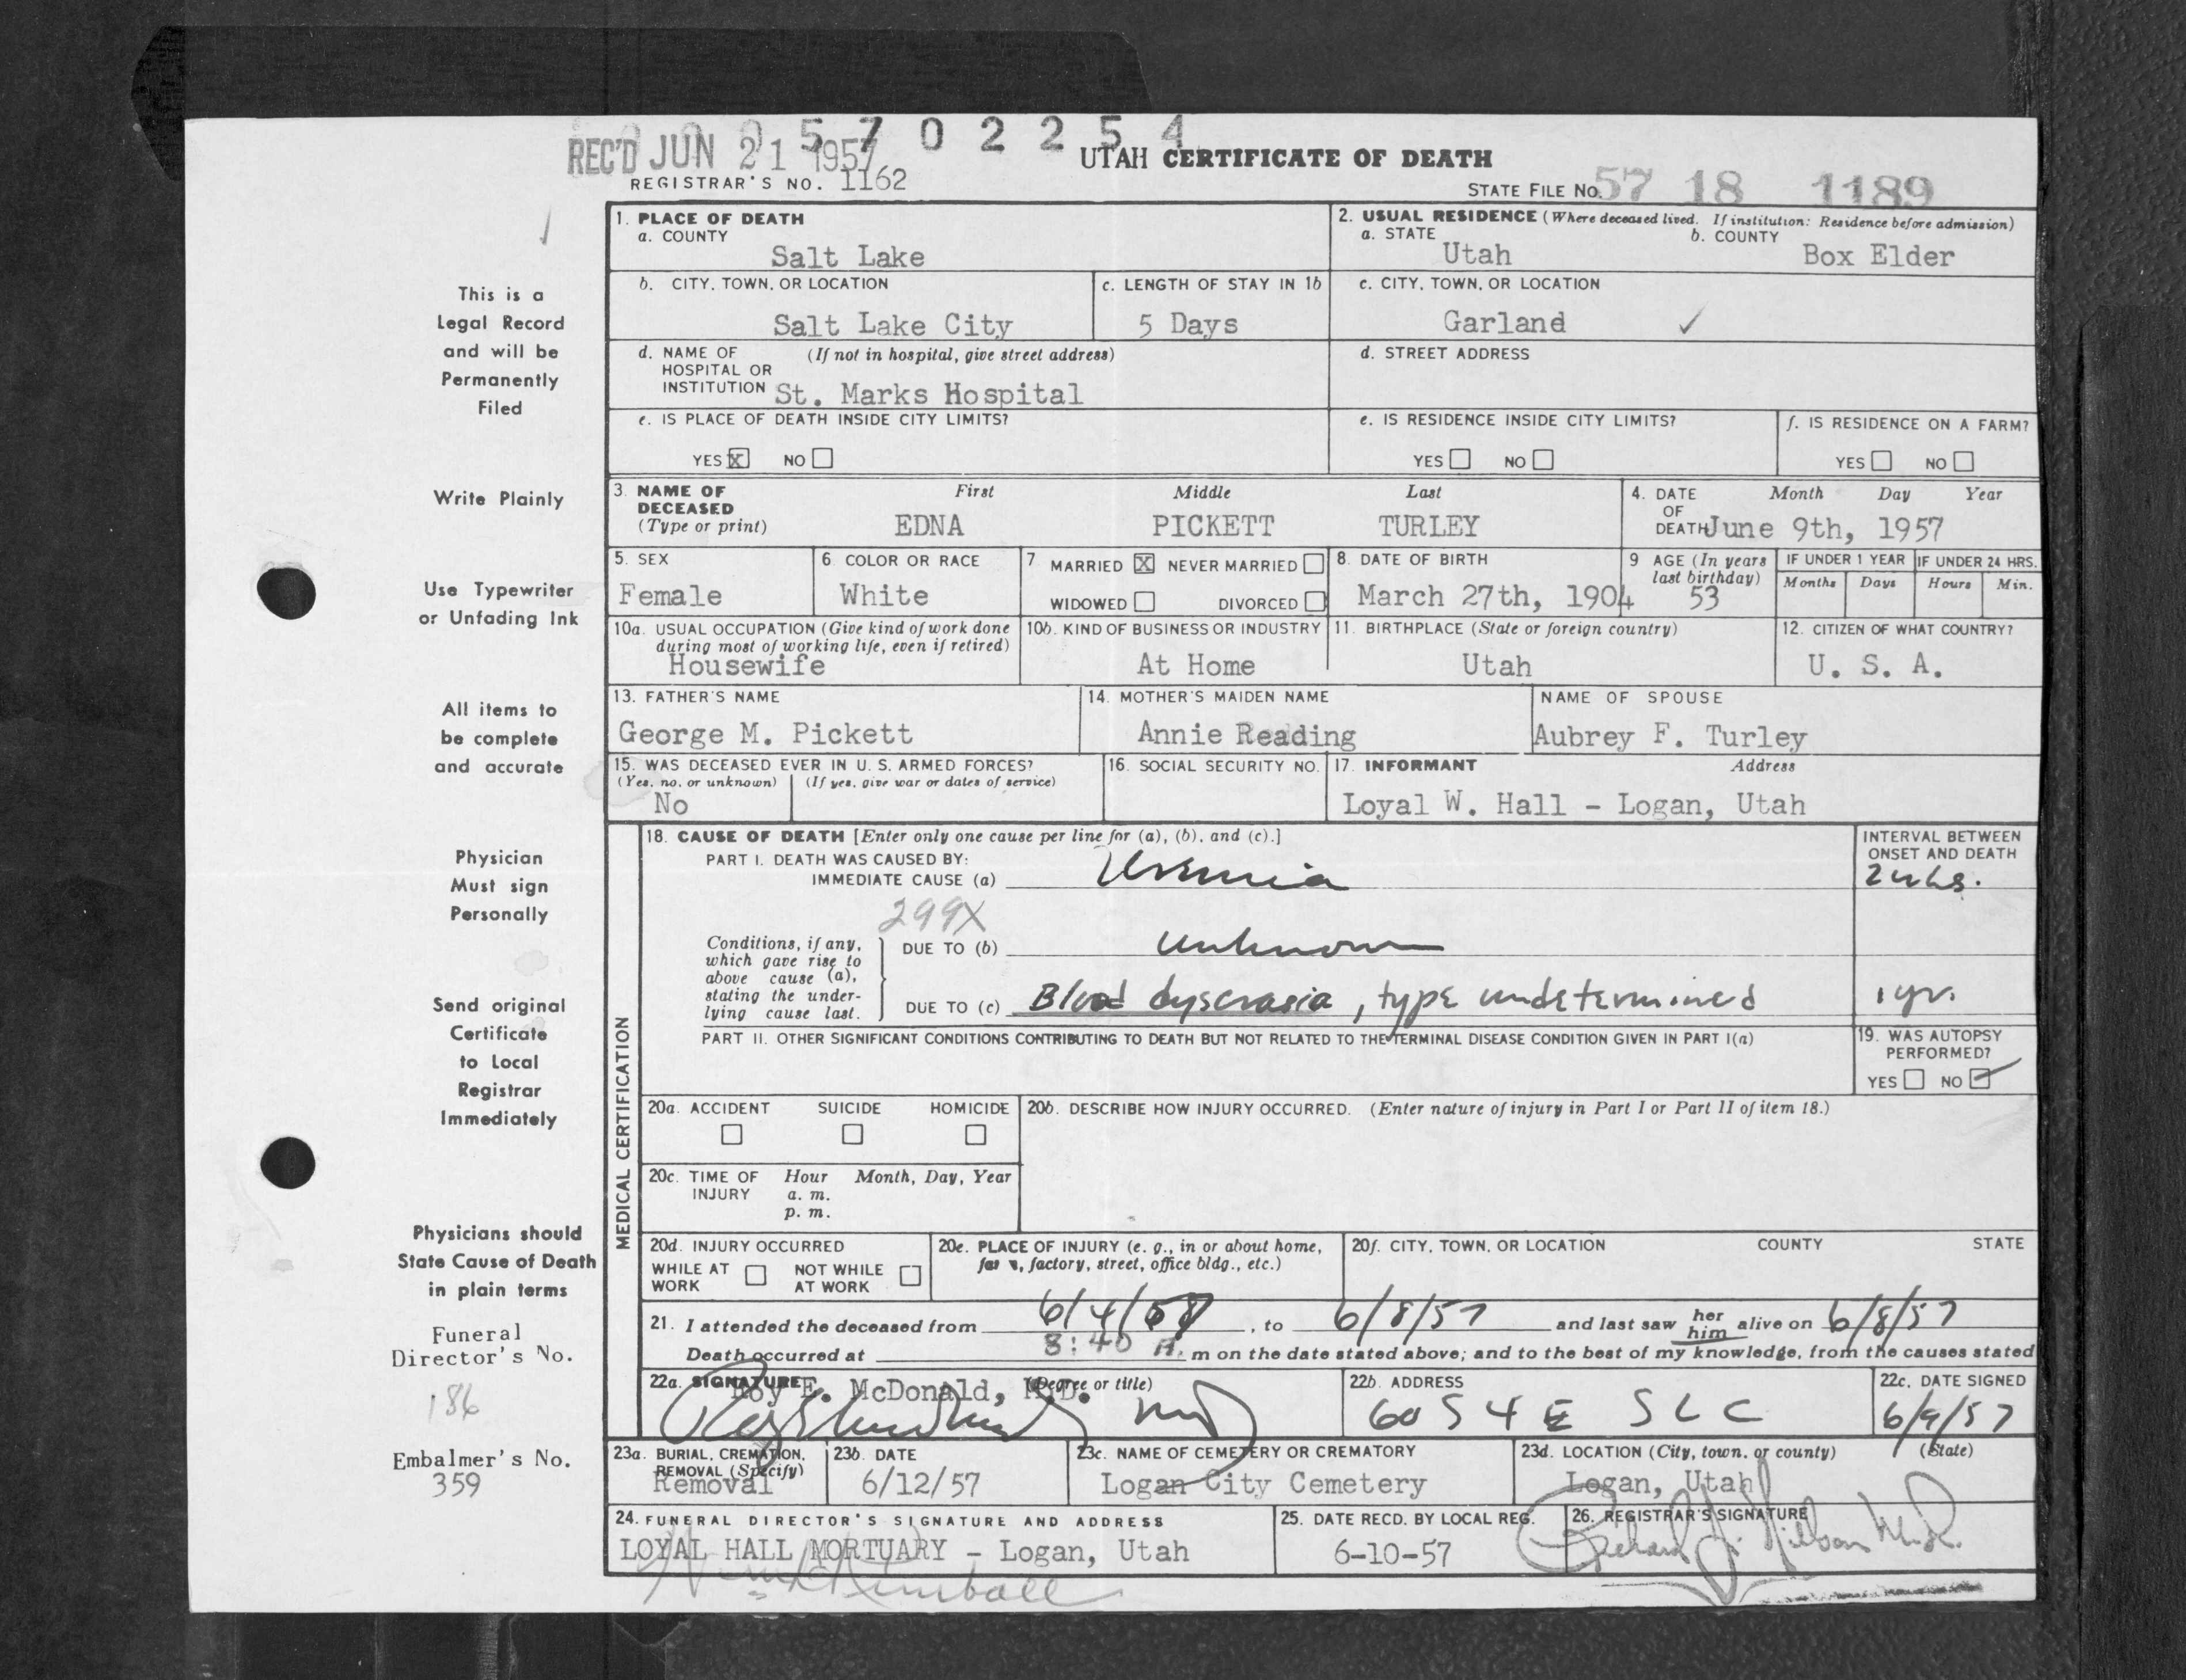 0 0 5 7 0 2 2 5 4
REC'D JUN 21 1957
UTAH CERTIFICATE OF DEATH
REGISTRAR'S NO. 1162
STATE FILE No. 57 18 1189
1. PLACE OF DEATH
a. COUNTY
Salt Lake
2. USUAL RESIDENCE (Where deceased lived. If institution: Residence before admission)
a. STATE
Utah
b. COUNTY
Box Elder
b. CITY, TOWN, OR LOCATION
Salt Lake City
c. LENGTH OF STAY IN 1b
5 Days
c. CITY, TOWN, OR LOCATION
Garland ✓
d. NAME OF (If not in hospital, give street address)
HOSPITAL OR
INSTITUTION St. Marks Hospital
d. STREET ADDRESS
e. IS PLACE OF DEATH INSIDE CITY LIMITS?
YES X NO
e. IS RESIDENCE INSIDE CITY LIMITS?
YES NO
f. IS RESIDENCE ON A FARM?
YES NO
3. NAME OF DECEASED (Type or print)
First Middle Last
EDNA PICKETT TURLEY
4. DATE OF DEATH Month Day Year
June 9th, 1957
5. SEX
Female
6. COLOR OR RACE
White
7 MARRIED X NEVER MARRIED
WIDOWED DIVORCED
8. DATE OF BIRTH
March 27th, 1904
9 AGE (In years last birthday)
53
IF UNDER 1 YEAR
Months Days
IF UNDER 24 HRS.
Hours Min.
10a. USUAL OCCUPATION (Give kind of work done
during most of working life, even if retired)
Housewife
10b. KIND OF BUSINESS OR INDUSTRY
At Home
11. BIRTHPLACE (State or foreign country)
Utah
12. CITIZEN OF WHAT COUNTRY?
U. S. A.
13. FATHER'S NAME
George M. Pickett
14. MOTHER'S MAIDEN NAME
Annie Reading
NAME OF SPOUSE
Aubrey F. Turley
15. WAS DECEASED EVER IN U. S. ARMED FORCES?
(Yes, no, or unknown) (If yes, give war or dates of service)
No
16. SOCIAL SECURITY NO.
17. INFORMANT Address
Loyal W. Hall - Logan, Utah
MEDICAL CERTIFICATION
18. CAUSE OF DEATH [Enter only one cause per line for (a), (b), and (c).]
PART I. DEATH WAS CAUSED BY:
IMMEDIATE CAUSE (a) Uremia
INTERVAL BETWEEN
ONSET AND DEATH
299X
Conditions, if any,
which gave rise to
above cause (a),
stating the under-
lying cause last.
DUE TO (b) unknown
DUE TO (c) Blood dyscrasia, type undetermined
1 yr.
PART II. OTHER SIGNIFICANT CONDITIONS CONTRIBUTING TO DEATH BUT NOT RELATED TO THE TERMINAL DISEASE CONDITION GIVEN IN PART I(a)
19. WAS AUTOPSY
PERFORMED?
YES NO ✓
20a. ACCIDENT SUICIDE HOMICIDE
20b. DESCRIBE HOW INJURY OCCURRED. (Enter nature of injury in Part I or Part II of item 18.)
20c. TIME OF INJURY Hour Month, Day, Year
a. m.
p. m.
20d. INJURY OCCURRED
WHILE AT WORK NOT WHILE AT WORK
20e. PLACE OF INJURY (e. g., in or about home,
factory, street, office bldg., etc.)
20f. CITY, TOWN, OR LOCATION COUNTY STATE
21. I attended the deceased from 6/4/57, to 6/8/57 and last saw her him alive on 6/8/57
Death occurred at 8:40 A. m on the date stated above; and to the best of my knowledge, from the causes stated
22a. SIGNATURE (Degree or title)
Roy E. McDonald, M.D.
22b. ADDRESS
60 S 4 E SLC
22c. DATE SIGNED
6/9/57
23a. BURIAL, CREMATION,
REMOVAL (Specify)
Removal
23b. DATE
6/12/57
23c. NAME OF CEMETERY OR CREMATORY
Logan City Cemetery
23d. LOCATION (City, town, or county) (State)
Logan, Utah
24. FUNERAL DIRECTOR'S SIGNATURE AND ADDRESS
LOYAL HALL MORTUARY - Logan, Utah
25. DATE RECD. BY LOCAL REG.
6-10-57
26. REGISTRAR'S SIGNATURE
Kimball
This is a
Legal Record
and will be
Permanently
Filed
Write Plainly
Use Typewriter
or Unfading Ink
All items to
be complete
and accurate
Physician
Must sign
Personally
Send original
Certificate
to Local
Registrar
Immediately
Physicians should
State Cause of Death
in plain terms
Funeral
Director's No.
186
Embalmer's No.
359